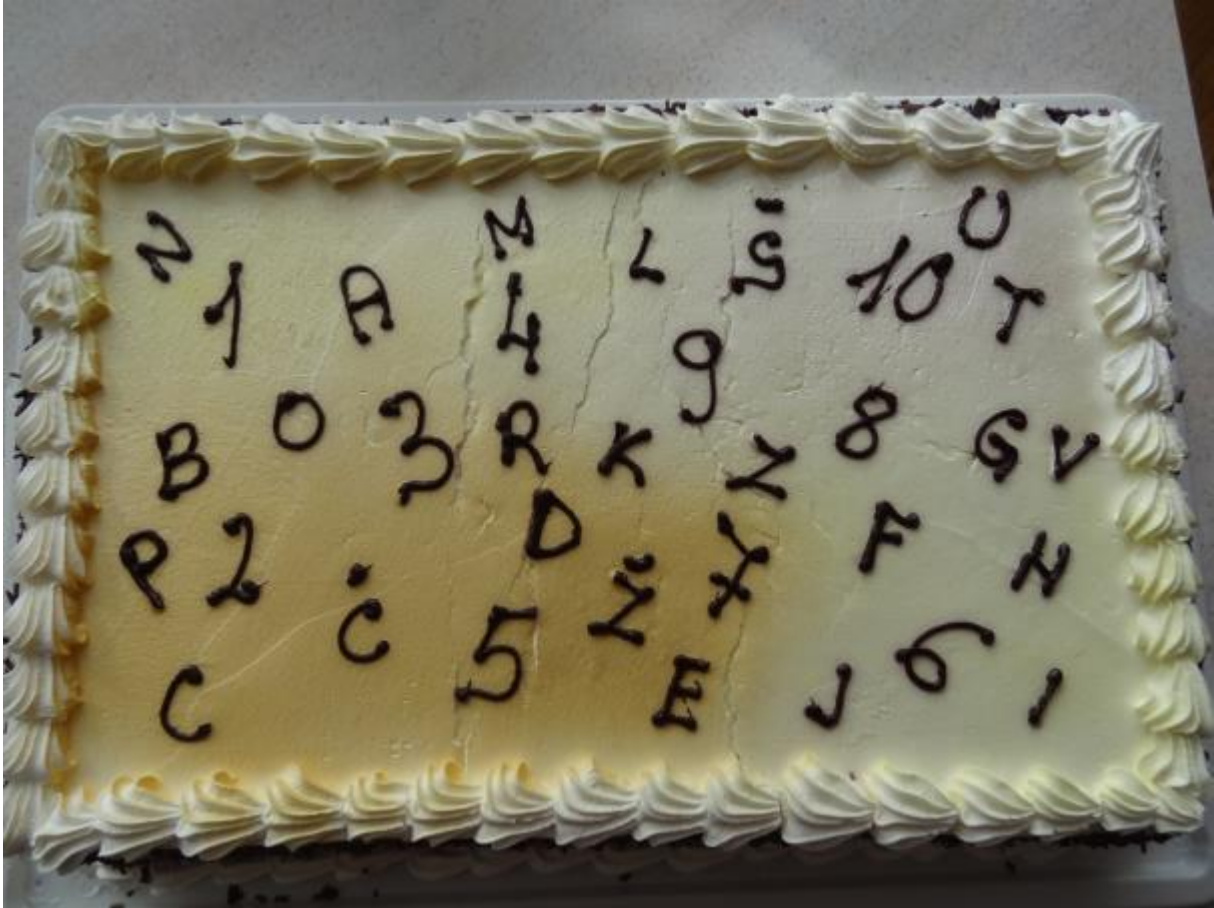 N M L Š U
1 A 4 9 10 T
B O 3 R K Z 8 G V
P 2 D Ž 7 F H
Č 5 E J 6 I
C